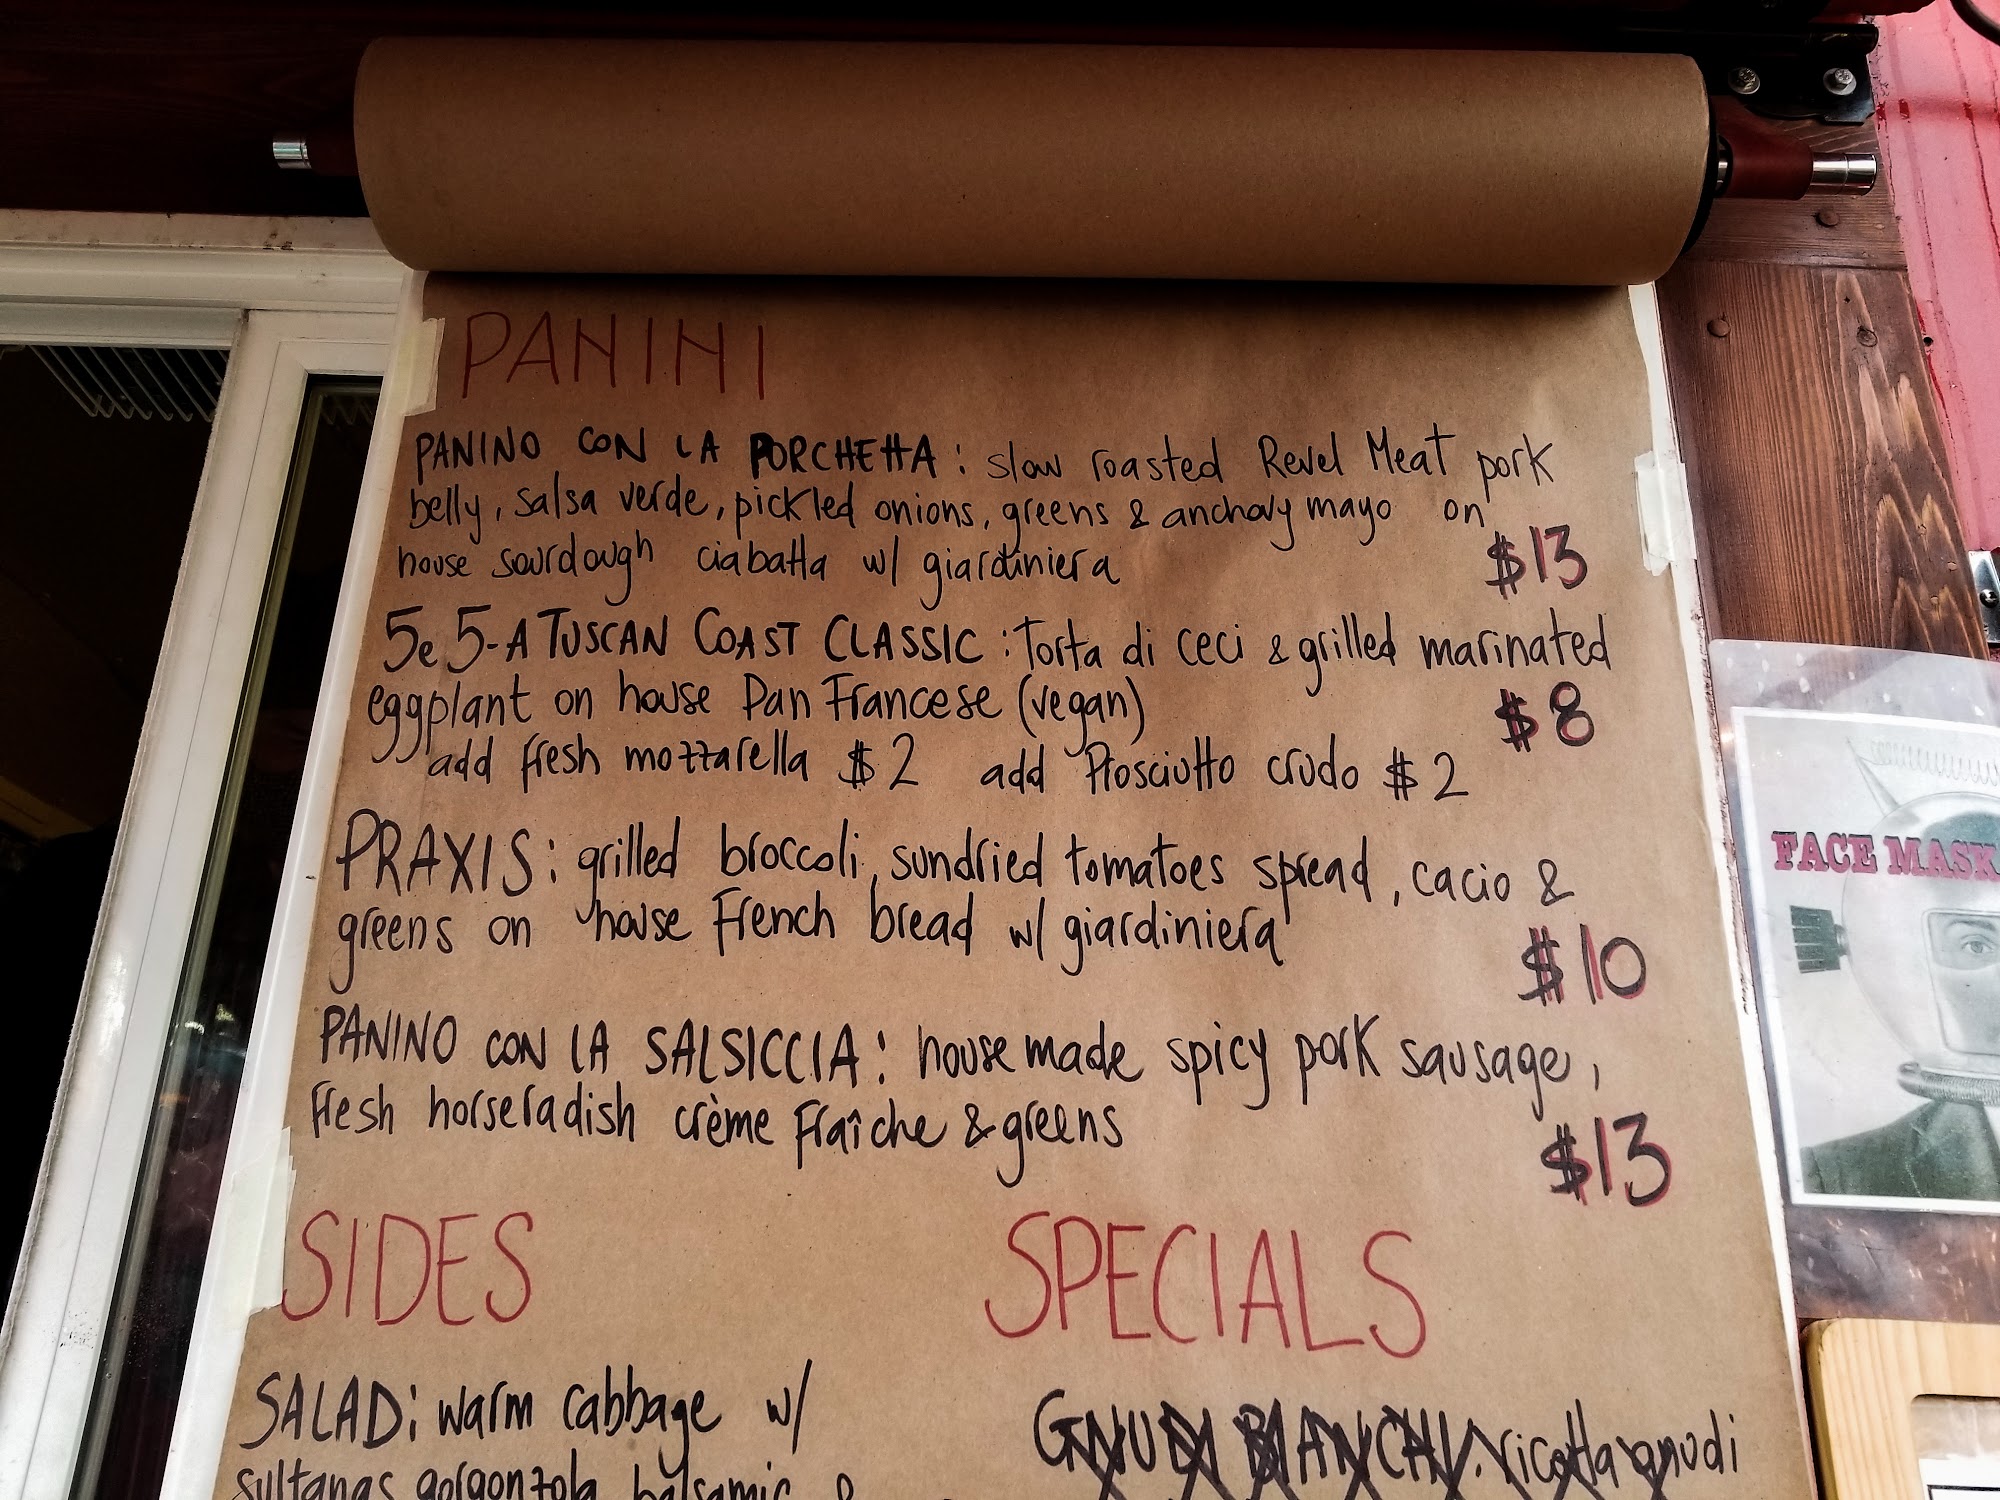 PANINI
PANINO CON LA PORCHETTA: slow roasted Revel Meat pork
belly, salsa verde, pickled onions, greens & anchovy mayo on
house sourdough ciabatta w/ giardiniera $13
5e5-A TUSCAN COAST CLASSIC: Torta di ceci & grilled marinated
eggplant on house Pan Francese (vegan) $8
add fresh mozzarella $2 add Prosciutto crudo $2
PRAXIS: grilled broccoli, sundried tomatoes spread, cacio &
greens on house French bread w/ giardiniera $10
PANINO CON LA SALSICCIA: house made spicy pork sausage,
fresh horseradish crème fraîche & greens $13
SIDES
SALAD: warm cabbage w/
sultanas gorgonzola balsamic &
SPECIALS
GNUDI BIANCHI: ricotta gnudi
FACE MASK